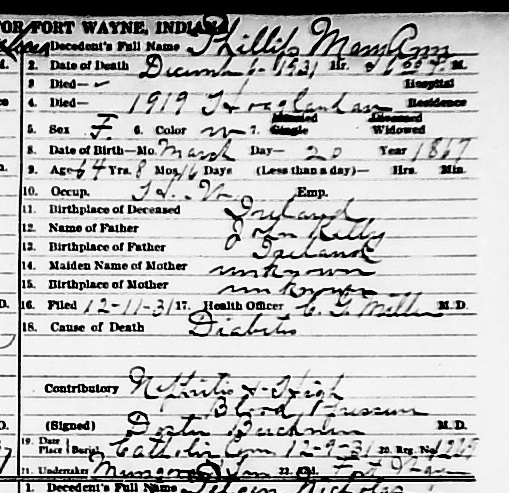 FOR FORT WAYNE, INDIANA
Decedent's Full Name Phillips Mary Ann
2. Date of Death December 6- 1931 Hr. M.
3 Died— Hospital
4. Died— 1919 Hoagland Residence
Married Divorced
5. Sex F 6. Color W 7. Single Widowed
8. Date of Birth—Mo. March Day— 20 Year 1867
9. Age 64 Yrs. 8 Mos. 16 Days (Less than a day)— Hrs. Min.
10. Occup. H. W. Emp.
11. Birthplace of Deceased Ireland
12. Name of Father John Kelly
13. Birthplace of Father Ireland
14. Maiden Name of Mother unknown
15. Birthplace of Mother unknown
16. Filed 12-11-31 17. Health Officer Miller M. D.
18. Cause of Death Diabetis
Contributory Nephritis & High
Blood Pressure
(Signed) M. D.
19. Date Place Burial Catholic Cem 12-9-31 20. Reg. No. 1219
21. Undertaker & Son 22. Add. Fort Wayne
1. Decedent's Full Name Nicholas